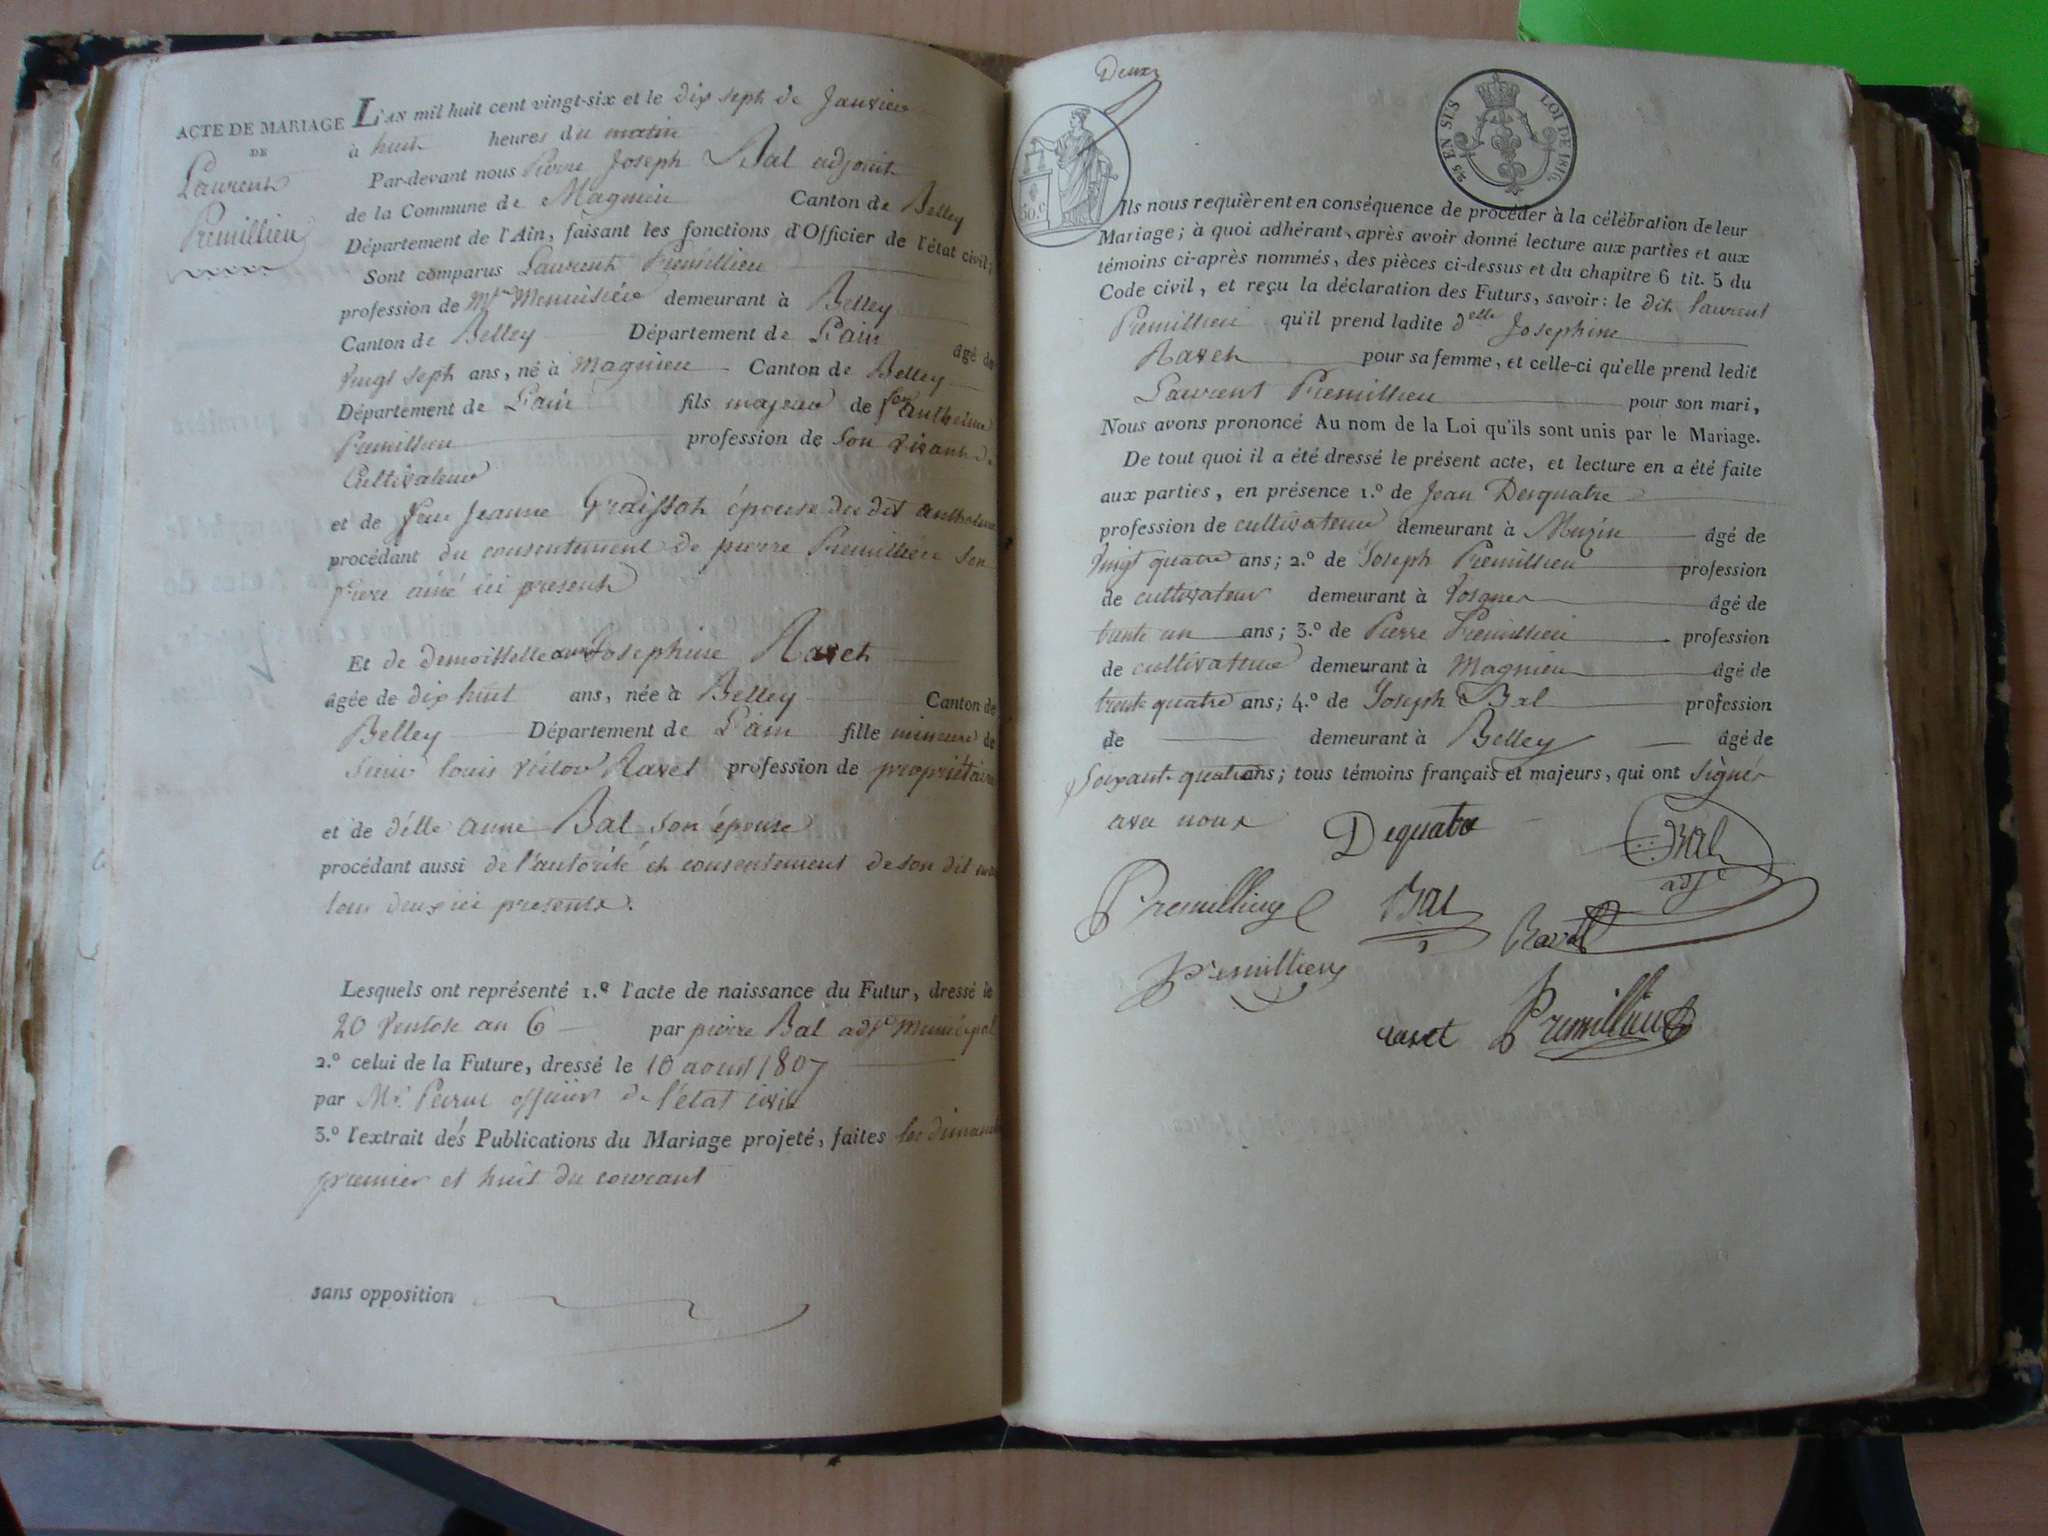 ACTE DE MARIAGE
DE
Laurent
Premillieu
L'AN mil huit cent vingt-six et le dix sept de Janvier
à huit heures du matin
Par-devant nous Pierre Joseph Bal adjoint
de la Commune de Magnieu Canton de Belley
Département de l'Ain, faisant les fonctions d'Officier de l'état civil;
Sont comparus Laurent Premillieu
profession de Mtre Menuisier demeurant à Belley
Canton de Belley Département de L'ain âgé de
vingt sept ans, né à Magnieu Canton de Belley
Département de L'ain fils majeur de feu anthelme
Premillieu profession de son vivant de
Cultivateur
et de feue Jeanne Graisson épouse du dit anthelme
procédant du consentement de pierre Premillieu son
frere ainé ici present
Et de demoiselle Josephine Ravet
âgée de dix huit ans, née à Belley Canton de
Belley Département de L'ain fille mineure de
Sieur louis victor Ravet profession de propriétaire
et de d'elle anne Bal son épouse
procédant aussi de l'autorité et consentement de son dit
tous deux ici presents.
Lesquels ont représenté 1.º l'acte de naissance du Futur, dressé le
20 Ventose an 6 par pierre Bal adjt municipal
2.º celui de la Future, dressé le 10 aoust 1807
par Mr. officier de l'état civil
3.º l'extrait des Publications du Mariage projeté, faites les dimanche
premier et huit du courant
sans opposition
Deux
50.c
25 EN SUS
LOI DE 1816.
Ils nous requièrent en conséquence de procéder à la célébration de leur
Mariage; à quoi adhérant, après avoir donné lecture aux parties et aux
témoins ci-après nommés, des pièces ci-dessus et du chapitre 6 tit. 5 du
Code civil, et reçu la déclaration des Futurs, savoir: le dit laurent
Premillieu qu'il prend ladite delle Josephine
Ravet pour sa femme, et celle-ci qu'elle prend ledit
Laurent Premillieu pour son mari,
Nous avons prononcé Au nom de la Loi qu'ils sont unis par le Mariage.
De tout quoi il a été dressé le présent acte, et lecture en a été faite
aux parties, en présence 1.º de Jean Dequatre
profession de cultivateur demeurant à Muzin âgé de
vingt quatre ans; 2.º de Joseph Premillieu profession
de cultivateur demeurant à Vosgner âgé de
trente un ans; 3.º de Pierre Premillieu profession
de cultivateur demeurant à Magnieu âgé de
trente quatre ans; 4.º de Joseph Bal profession
de demeurant à Belley âgé de
soixant quatre ans; tous témoins français et majeurs, qui ont signés
avec nous
Dequatre
Bal
adjt
Premillieu
Bal
Ravet
Premillieu
ravet
Premillieu